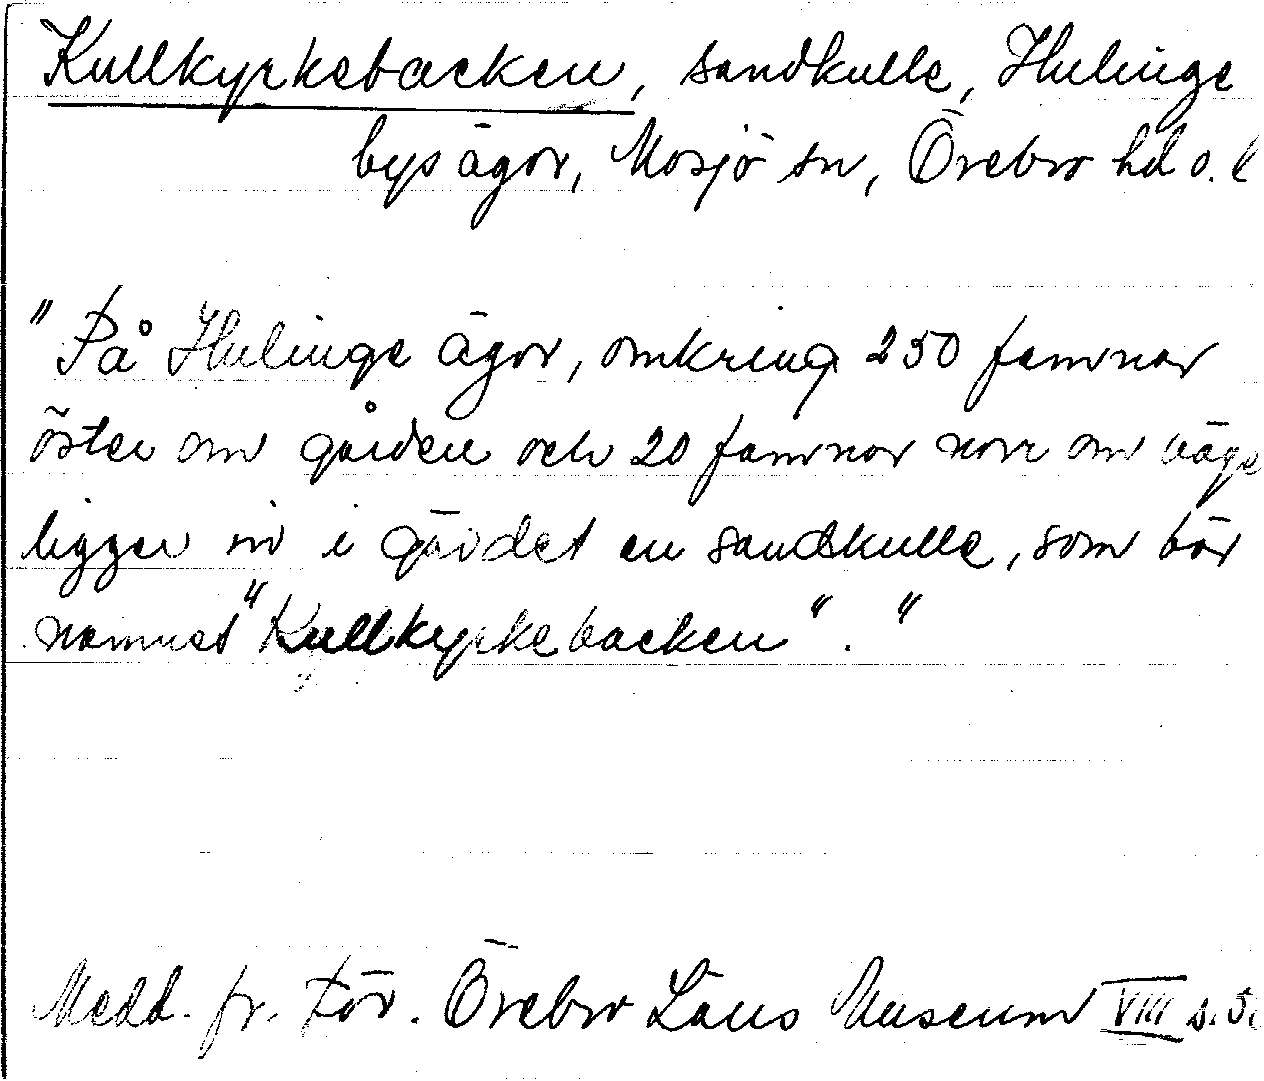 Kullkyrkebacken, sandkulle, Hulinge
bys ägor, Mosjö sn, Örebro hd o. l
"På Hulinge ägor, omkring 250 famnar
öster om gården och 20 famnar norr om väge
ligger in i gärdet en sandkulle, som bär
namnet "Kullkyrkebacken"."
Medd. fr. För. Örebro Läns Museum VIII s. 5